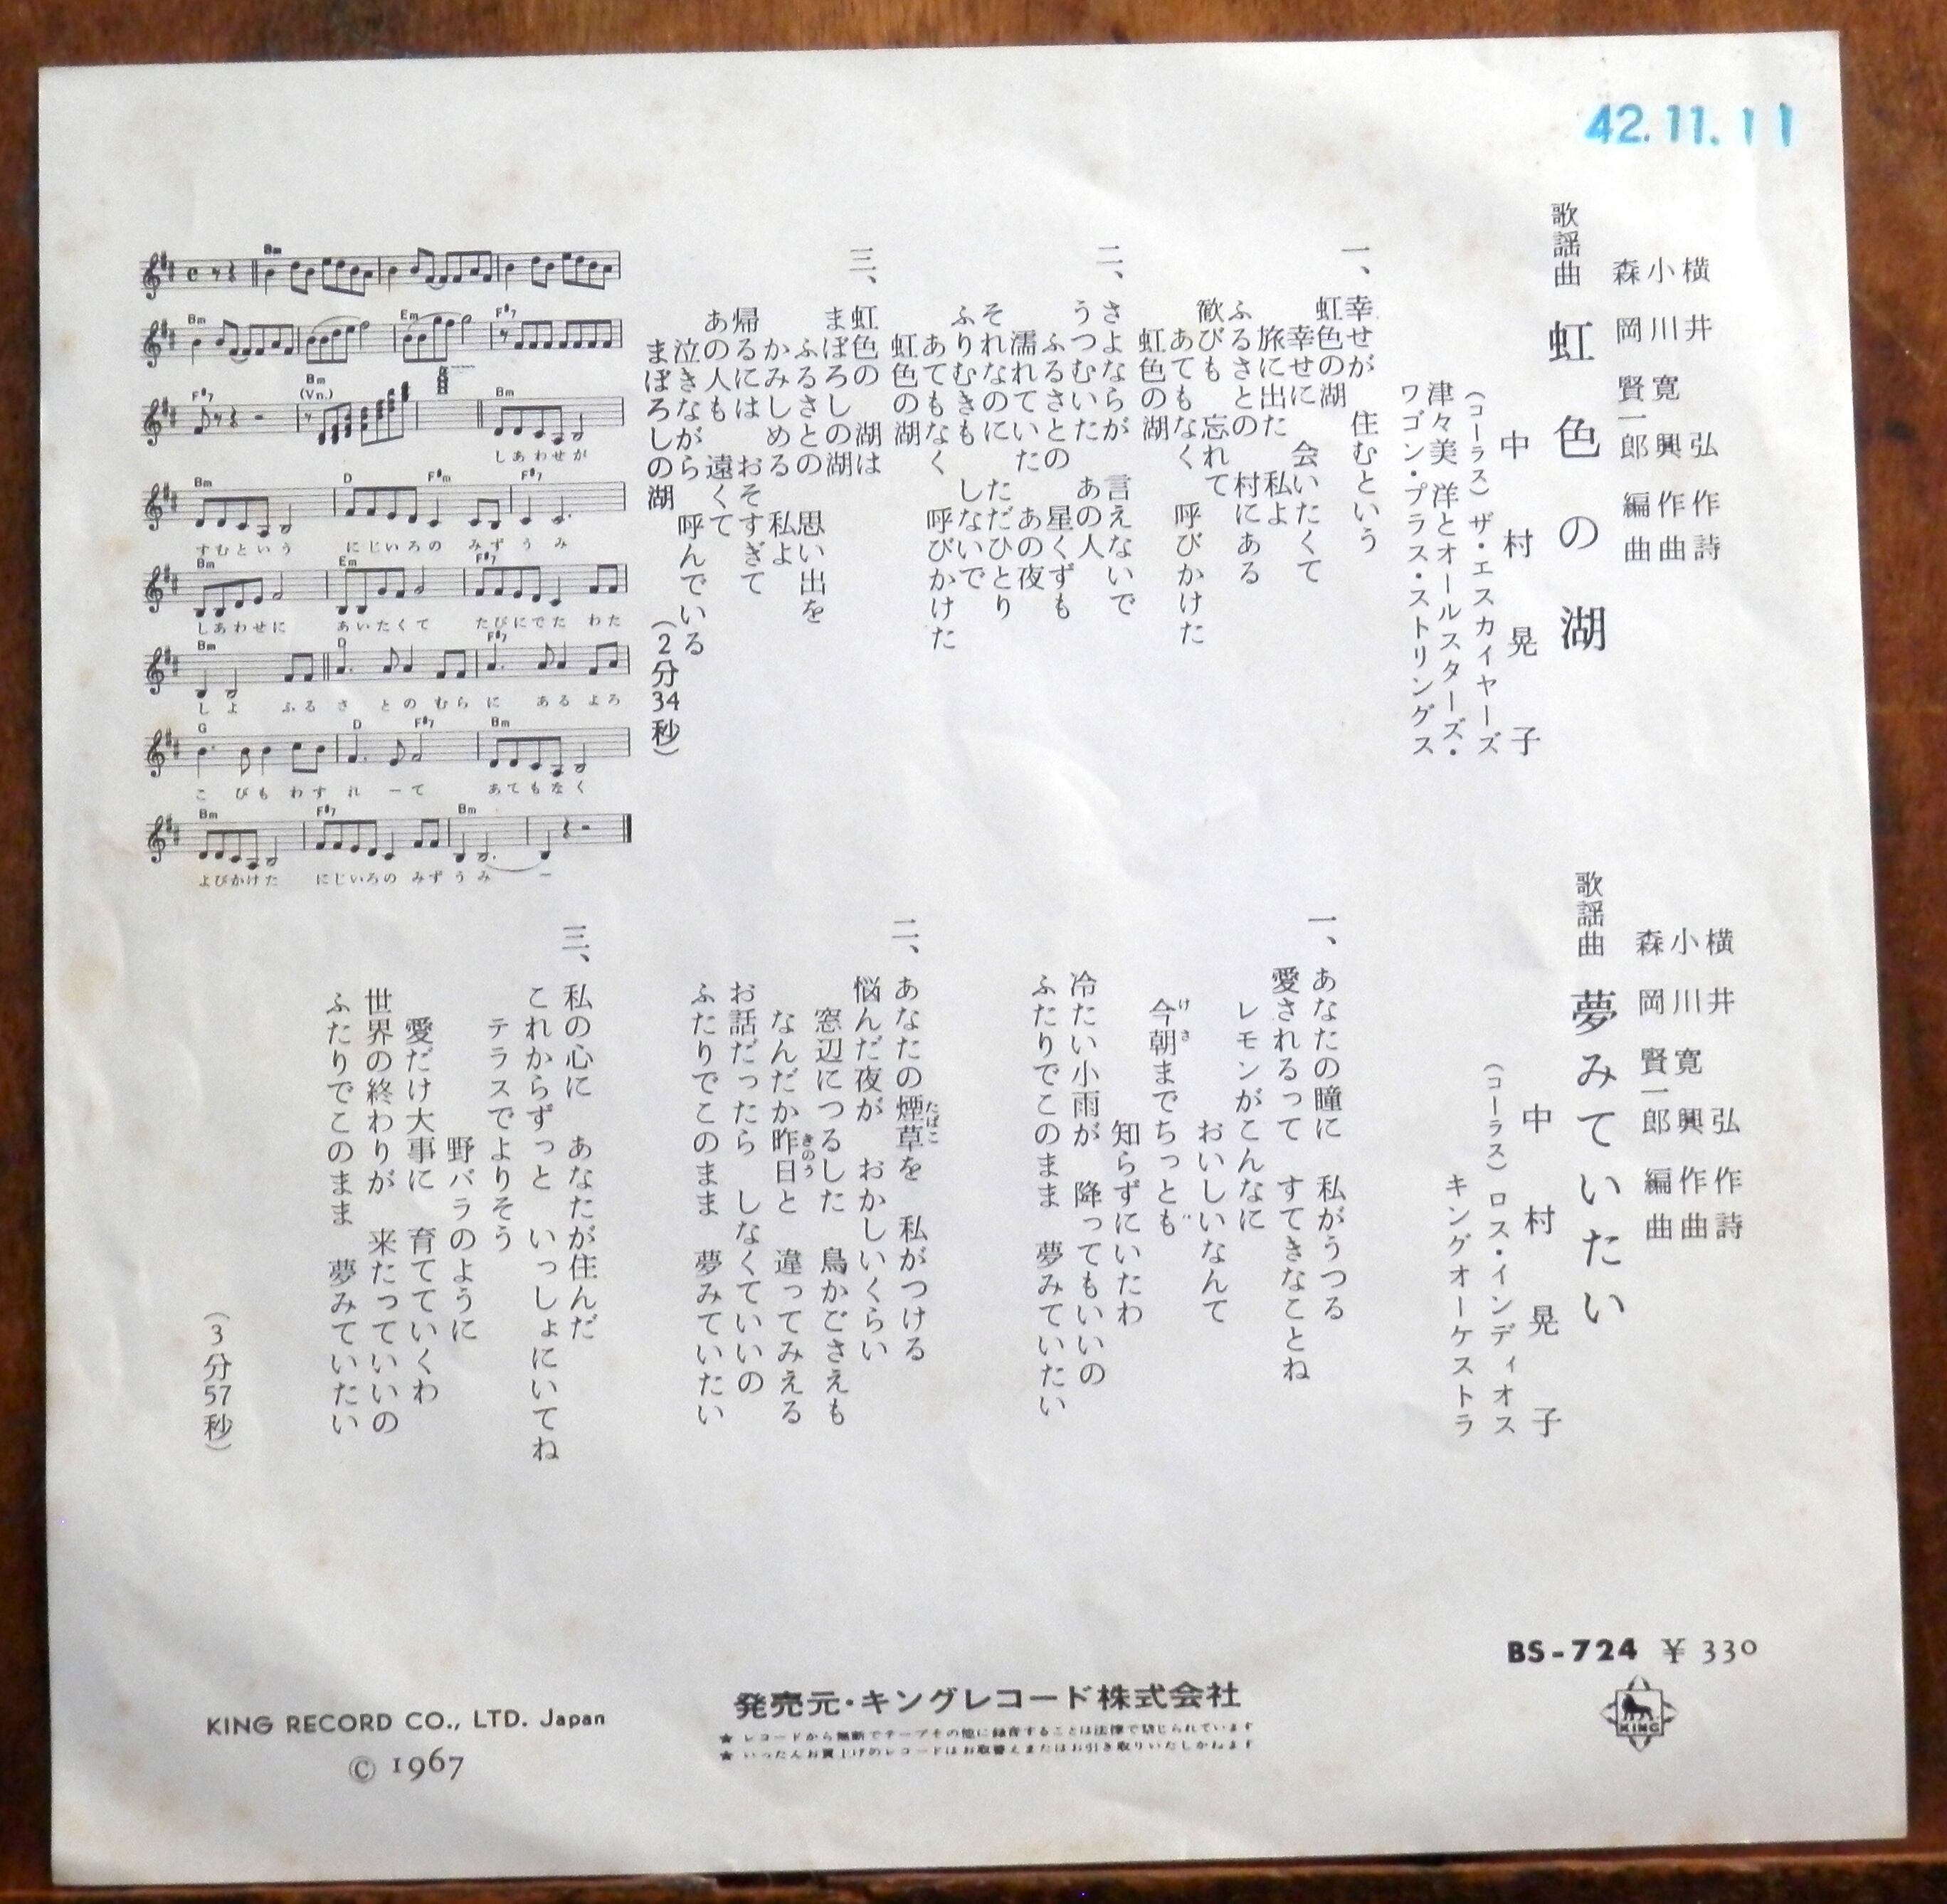 42.11.11
横井 弘 作詩
小川寛興 作曲
森岡賢一郎 編曲
歌謡曲 虹色の湖
中村晃子
(コーラス) ザ・エスカイヤーズ
津々美 洋とオールスターズ・
ワゴン・プラス・ストリングス
一、幸せが 住むという
虹色の湖
幸せに 会いたくて
旅に出た 私よ
ふるさとの 村にある
歓びも 忘れて
あてもなく 呼びかけた
虹色の湖
二、さよならが 言えないで
うつむいた あの人
ふるさとの 星くずも
濡れていた あの夜
それなのに ただひとり
ふりむきも しないで
あてもなく 呼びかけた
虹色の湖
三、虹色の 湖は
まぼろしの湖
ふるさとの 思い出を
かみしめる 私よ
帰るには おそすぎて
あの人も 遠くて
泣きながら 呼んでいる
まぼろしの湖
(2分34秒)
Bm
Bm Em F#7
F#7 Bm (Vn.) Bm
しあわせが
Bm D F#m F#7
すむという にじいろの みずうみ
Bm Em F#7
しあわせに あいたくて たびにでた わた
Bm D F#7
しよ ふるさとの むらに あるよろ
G D F#7 Bm
こびもわすれーて あてもなく
Bm F#7 Bm
よびかけた にじいろの みずうみ ー
横井 弘 作詩
小川寛興 作曲
森岡賢一郎 編曲
歌謡曲 夢みていたい
中村晃子
(コーラス) ロス・インディオス
キングオーケストラ
一、あなたの瞳に 私がうつる
愛されるって すてきなことね
レモンがこんなに
おいしいなんて
今朝までちっとも
けさ
知らずにいたわ
冷たい小雨が 降ってもいいの
ふたりでこのまま 夢みていたい
二、あなたの煙草を 私がつける
たばこ
悩んだ夜が おかしいくらい
窓辺につるした 鳥かごさえも
なんだか昨日と 違ってみえる
きのう
お話だったら しなくていいの
ふたりでこのまま 夢みていたい
三、私の心に あなたが住んだ
これからずっと いっしょにいてね
テラスでよりそう
野バラのように
愛だけ大事に 育てていくわ
世界の終わりが 来たっていいの
ふたりでこのまま 夢みていたい
(3分57秒)
BS-724 ¥330
KING
発売元・キングレコード株式会社
★ レコードから無断でテープその他に録音することは法律で禁じられています
★ いったんお買上げのレコードはお取替えまたはお引き取りいたしかねます
KING RECORD CO., LTD. Japan
© 1967